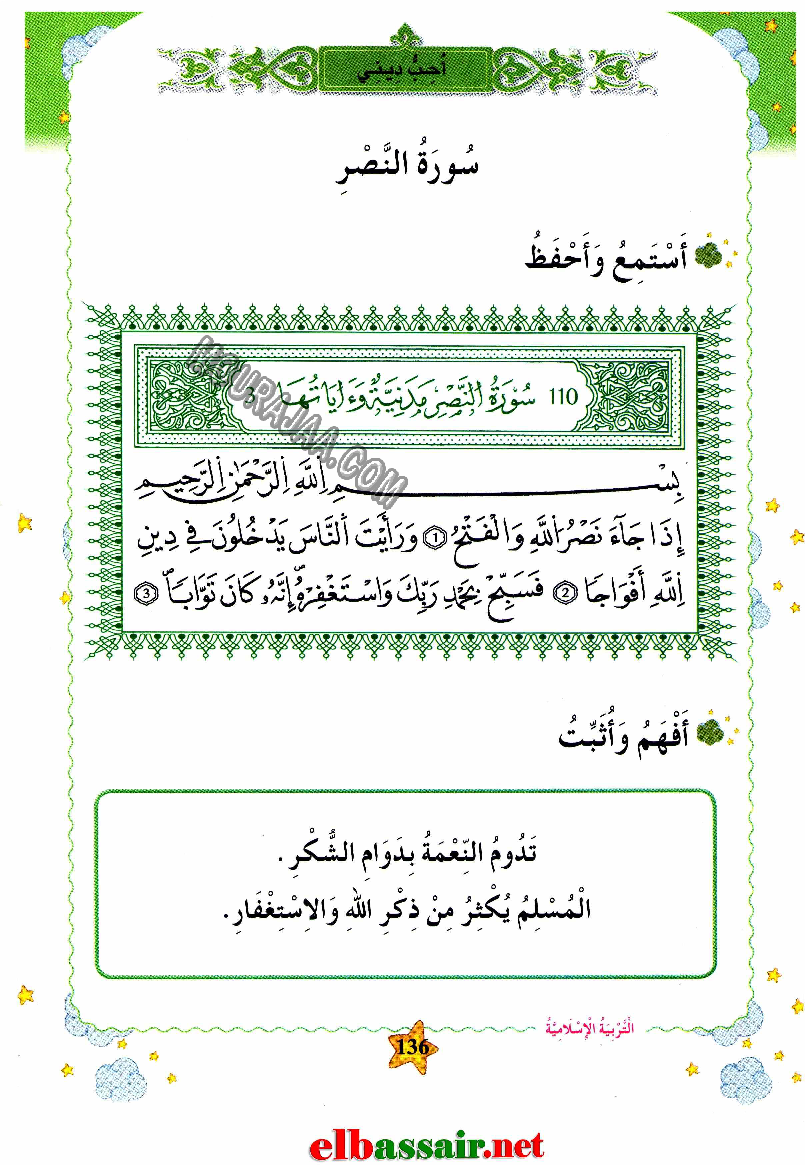 أُحِبُّ دِينِي
سُورَةُ النَّصْرِ
أَسْتَمِعُ وَأَحْفَظُ
110 سُورَةُ النَّصْرِ مَدَنِيَّةٌ وَءَايَاتُهَا 3
MOURAJAA.COM
بِسْمِ اِللَّهِ اِلرَّحْمَٰنِ اِلرَّحِيمِ
إِذَا جَآءَ نَصْرُ اُللَّهِ وَالْفَتْحُ 1 وَرَأَيْتَ اَلنَّاسَ يَدْخُلُونَ فِے دِينِ
اِللَّهِ أَفْوَاجًا 2 فَسَبِّحْ بِحَمْدِ رَبِّكَ وَاسْتَغْفِرْهُ إِنَّهُۥ كَانَ تَوَّابًا 3
أَفْهَمُ وَأُثَبِّتُ
تَدُومُ النِّعْمَةُ بِدَوَامِ الشُّكْرِ.
الْمُسْلِمُ يُكْثِرُ مِنْ ذِكْرِ اللهِ وَالِاسْتِغْفَارِ.
التَّرْبِيَةُ الْإِسْلَامِيَّةُ
136
elbassair.net